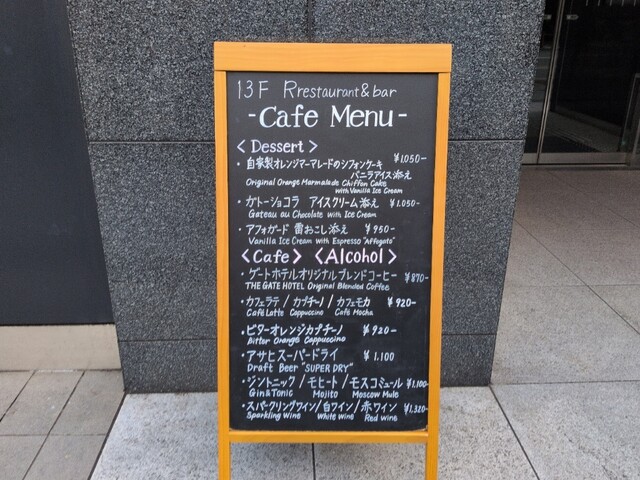 13F Rrestaurant&bar
-Cafe Menu-
< Dessert >
・自家製オレンジマーマレードのシフォンケーキ ¥1,050-
バニラアイス添え
Original Orange Marmalade Chiffon Cake
with Vanilla Ice Cream
・ガトーショコラ アイスクリーム添え ¥1,050-
Gateau au Chocolate with Ice Cream
・アフォガード 雷おこし添え ¥950-
Vanilla Ice Cream with Espresso "Affogato"
<Cafe> <Alcohol>
・ゲートホテルオリジナルブレンドコーヒー ¥870-
THE GATE HOTEL Original Blended Coffee
・カフェラテ/カプチーノ/カフェモカ ¥920-
Café Latte Cappuccino Café Mocha
・ビターオレンジカプチーノ ¥920-
Bitter Orange Cappuccino
・アサヒスーパードライ ¥1,100
Draft Beer "SUPER DRY"
・ジントニック/モヒート/モスコミュール ¥1,100-
Gin&Tonic Mojito Moscow Mule
・スパークリングワイン/白ワイン/赤ワイン ¥1,320-
Sparkling Wine White wine Red wine